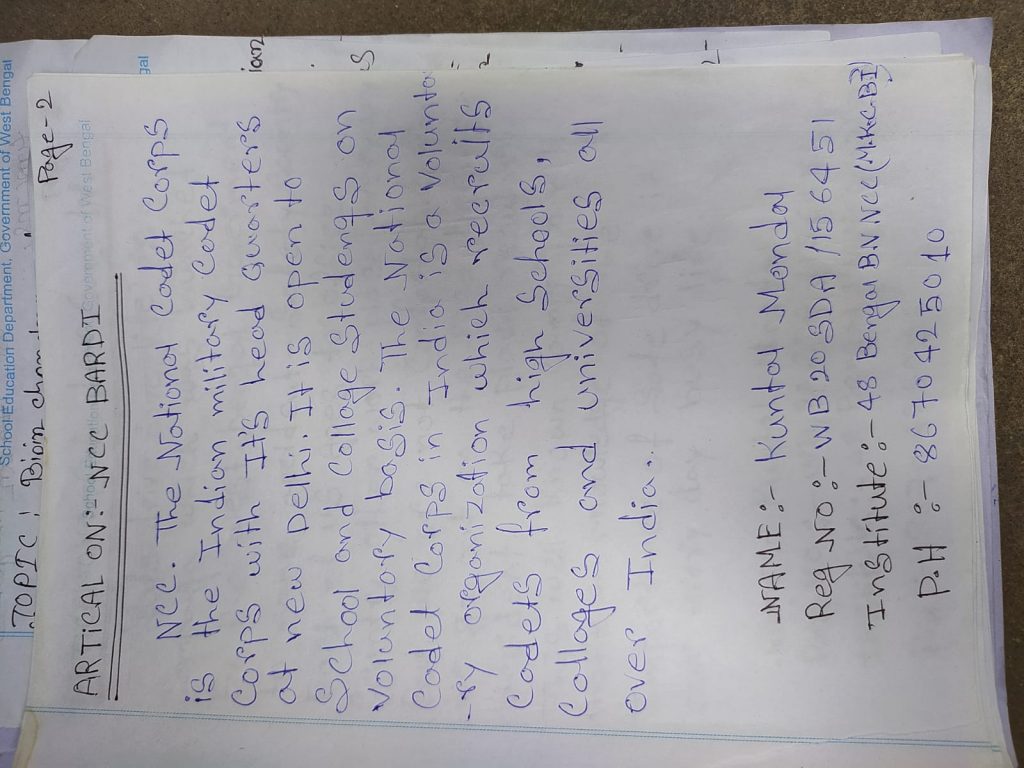 School Education Department, Government of West Bengal
TOPIC :
Page-2
ARTICAL ON:- NCC BARDI
NCC. The National Cadet Corps
is the Indian military Cadet
Corps with It's head quarters
at new Delhi. It is open to
School and Collage Students on
Voluntary basis. The National
Cadet Corps in India is a Volunta
-ry organization which recruits
Cadets from high Schools,
Collages and universities all
over India..
NAME :- Kuntal Mondal
Reg NO :- WB20SDA/156451
Institute :- 48 Bengal BN.NCC
P.H :- 8670425010